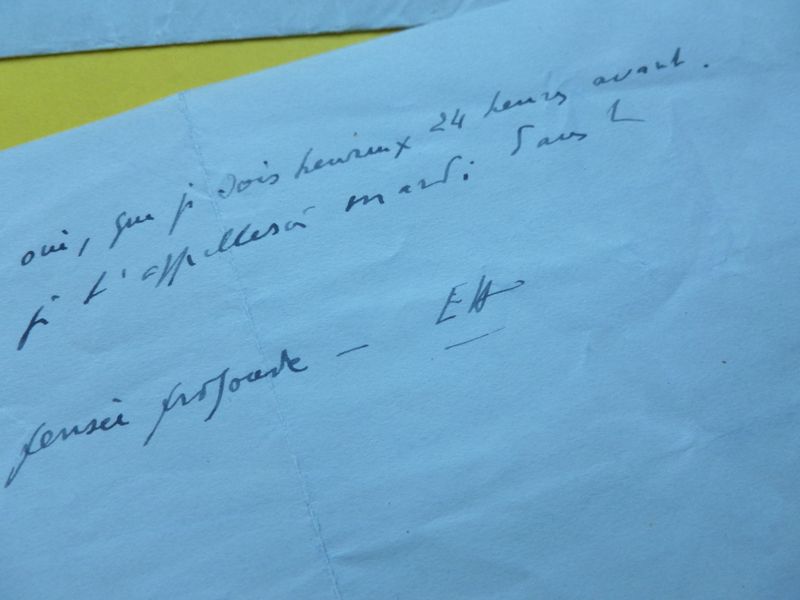 oui, que je sois heureux 24 heures avant.
je t'appellerai mardi. Dans l
pensée profonde — EH